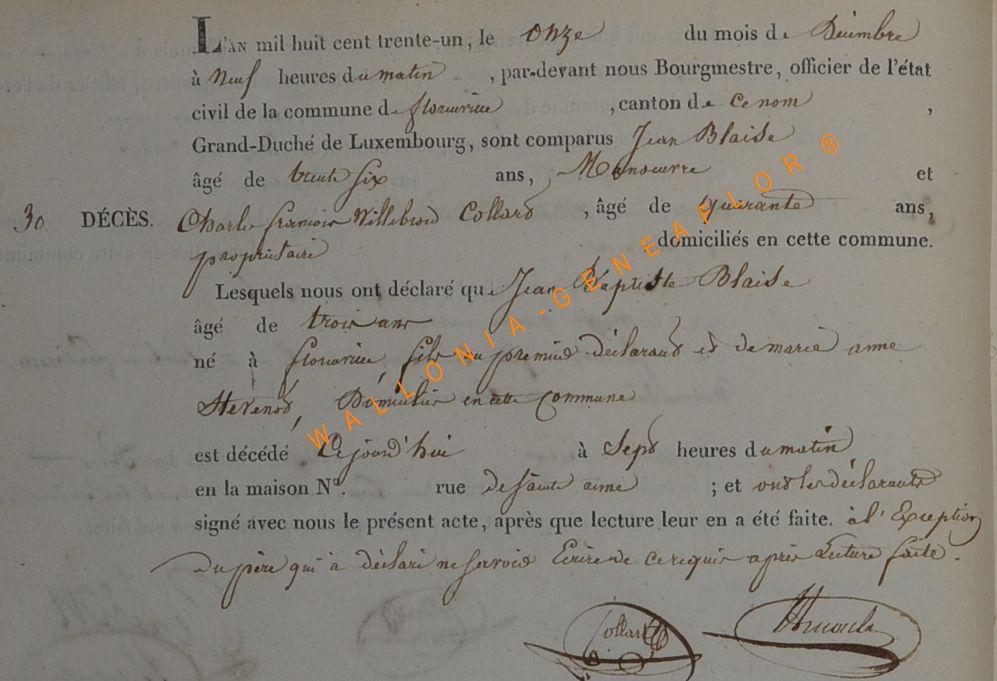 L'AN mil huit cent trente-un, le onze du mois de Décembre
à Neuf heures du matin , par-devant nous Bourgmestre, officier de l'état
civil de la commune de florenville , canton de ce nom ,
Grand-Duché de Luxembourg, sont comparus Jean Blaise
âgé de trente six ans, Manoeuvre et
30 DÉCÈS. Charles françois Villebrord Collard , âgé de quarante ans,
propriétaire domiciliés en cette commune.
Lesquels nous ont déclaré que Jean Baptiste Blaise
âgé de trois ans
né à florenville, fils du premier déclarant et de marie anne
Stevenot, Domiciliés en cette Commune
est décédé Cejourd'hui à Sept heures du matin
en la maison N°. rue de Sainte anne ; et ont les déclarants
signé avec nous le présent acte, après que lecture leur en a été faite. à l'Exception
du père qui à déclaré ne savoir Ecrire de ce requis après Lecture faite.
Collard
WALLONIA-GENEAFLOR ®